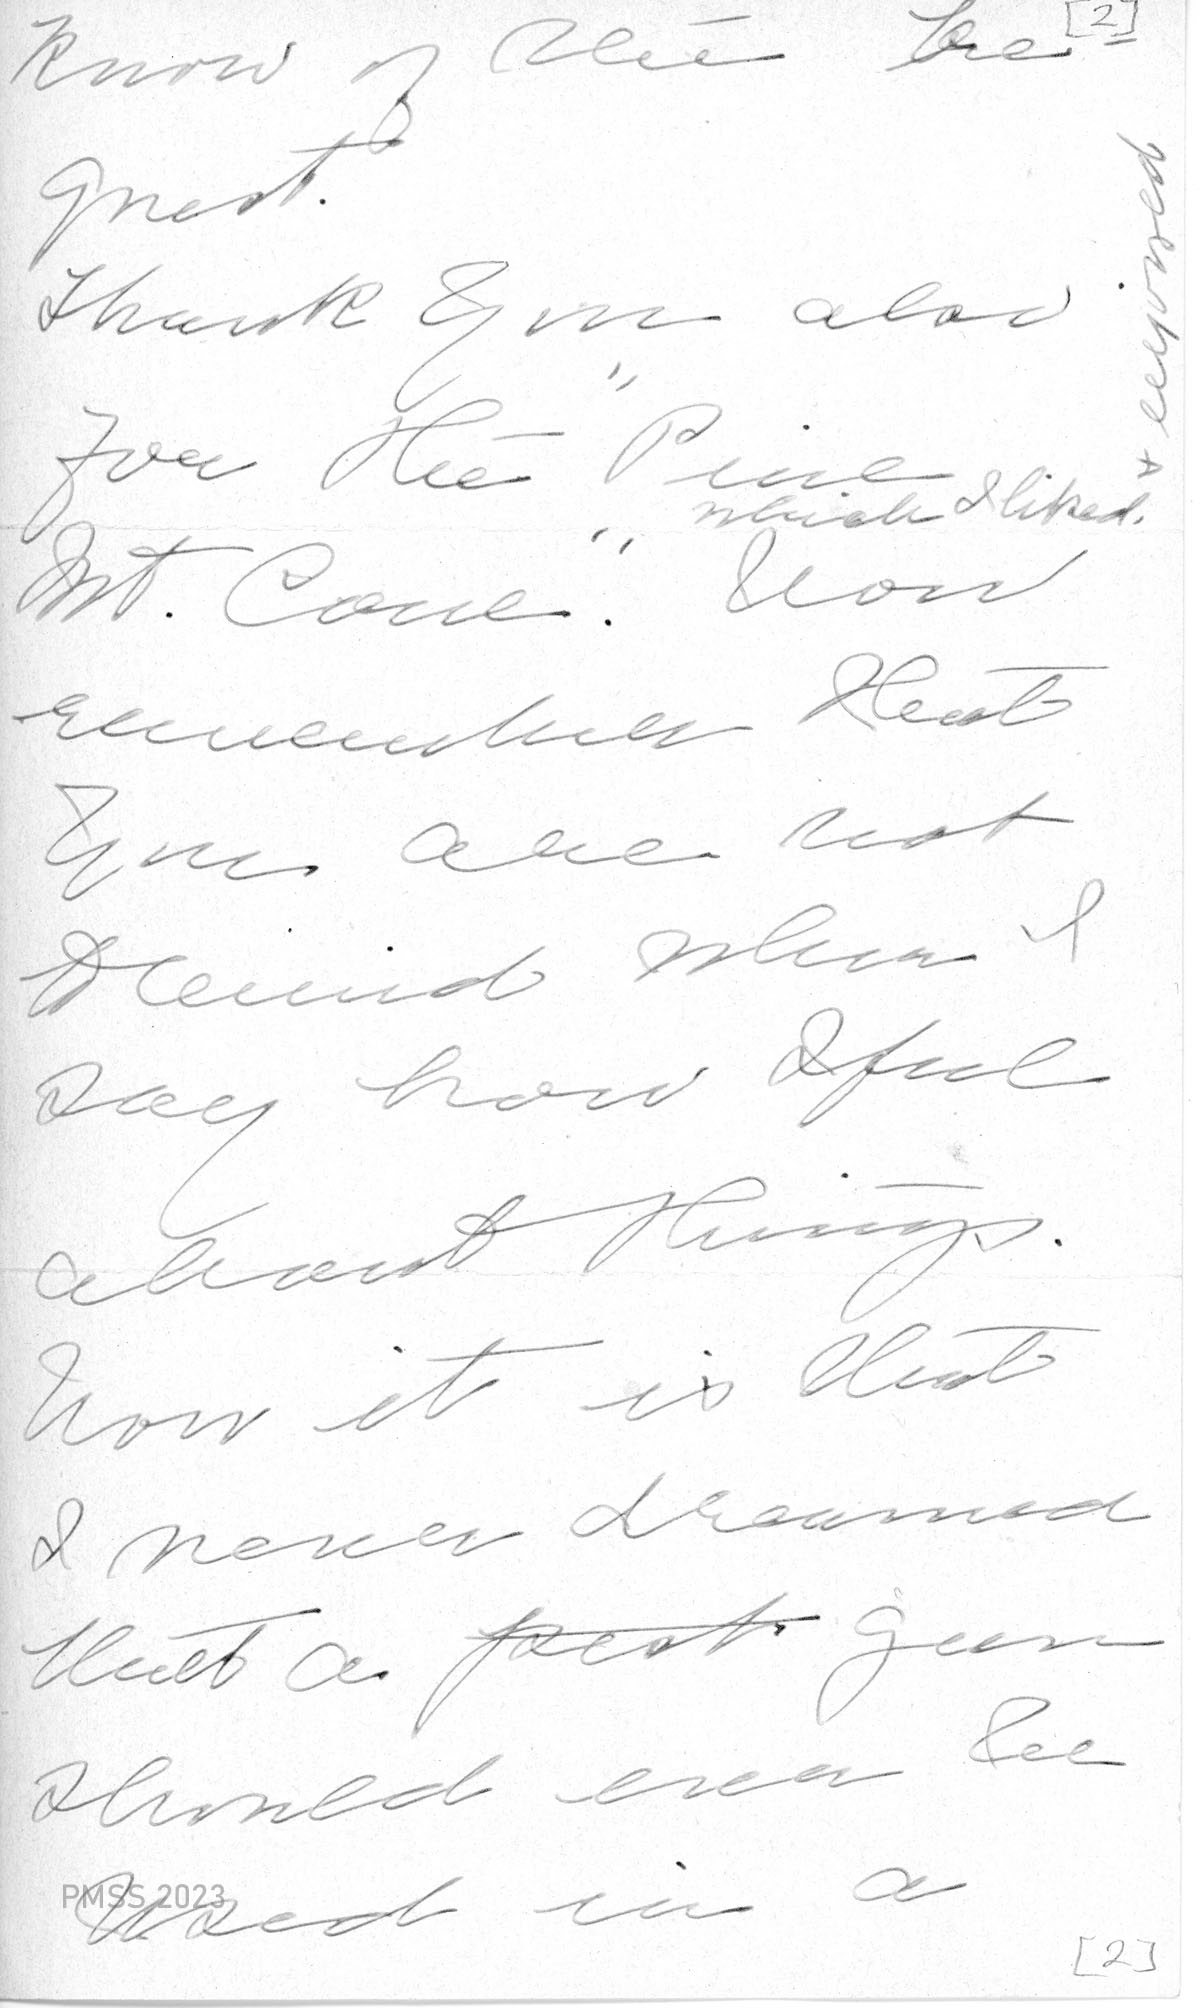 [2]
know of the be-
quest.
Thank you also
for the "Pine
Mt. Cone". which I liked.
+ enjoyed
Now
remember that
you are not
to mind when I
say how I feel
about things.
Now it is that
I never dreamed
that a pest gun
should ever be
used in a
PMSS 2023
[2]